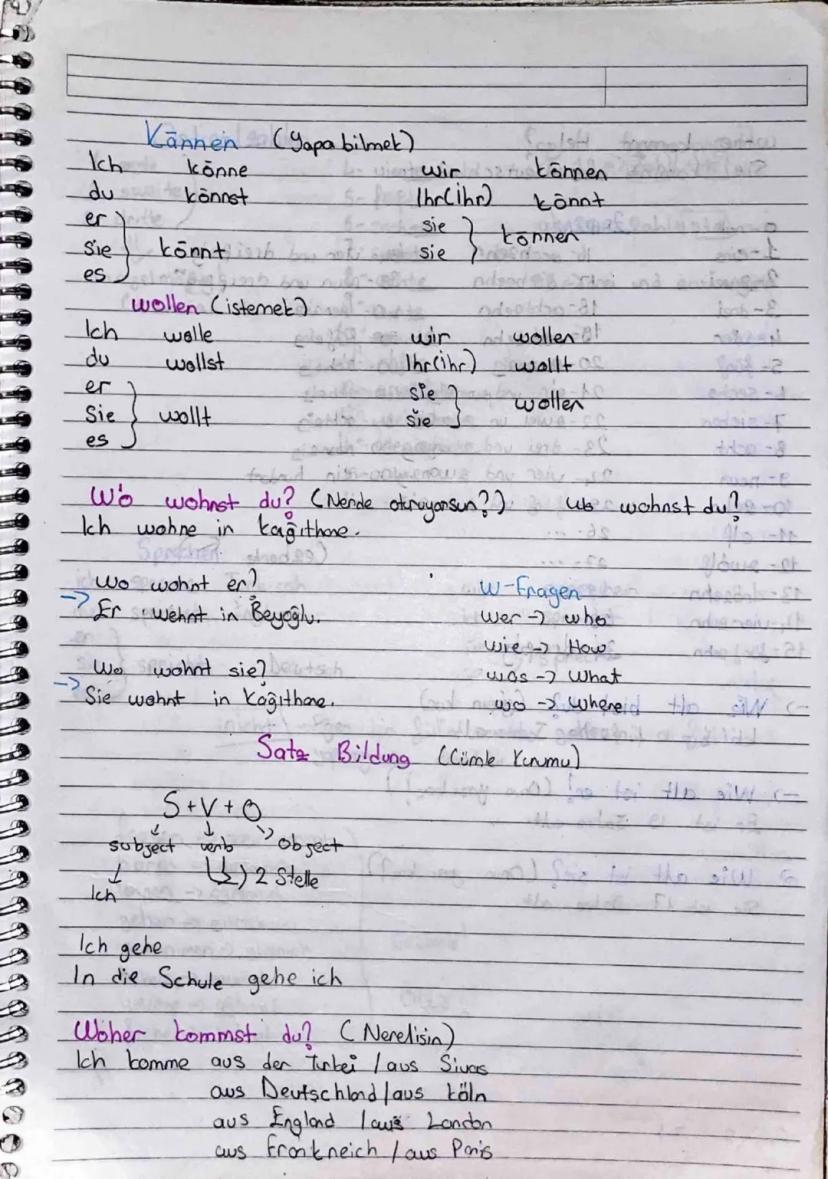 Können (Yapabilmek)
Ich könne wir können
du könnst Ihr(ihr) könnt
er sie
sie könnt sie können
es
wollen (istemek)
Ich wolle wir wollen
du wollst Ihr(ihr) wollt
er sie
Sie wollt sie wollen
es
Wo wohnst du? (Nerde oturuyorsun?) wo wohnst du?
Ich wohne in Kağıthane.
Wo wohnt er? W-Fragen
→ Er wohnt in Beyoğlu. wer → who
wie → How
Wo wohnt sie? was → What
→ Sie wohnt in Kağıthane. wo → Where
Satz Bildung (Cümle Kurumu)
S+V+O
subject verb object
2 Stelle
Ich
Ich gehe
In die Schule gehe ich
Woher kommst du? (Nerelisin)
Ich komme aus der Turkei / aus Sivas
aus Deutschland / aus Köln
aus England / aus London
aus Frankreich / aus Paris